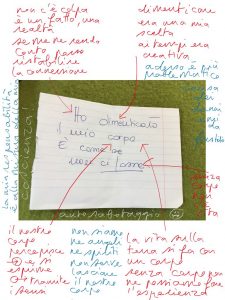 non c'è colpa
è un fatto, una
realtà
se me ne rendo
conto posso
ristabilire
la connessione
dimenticare
era una mia
scelta
ai tempi era
creativa
adesso è più
problematico
la mia responsabilità
è
coscienza
Ho dimenticato
il mio corpo
È come se
non ci fosse
senza corpo
autosabotaggio
il nostro
corpo
percepisce
e si
esprime
tramite
i sensi
non siamo
ne angeli
ne spiriti
non serve
lasciare
il nostro
corpo
La vita sulla
terra si fa con
un corpo
senza corpo non
ne possiamo fare
l'esperienza